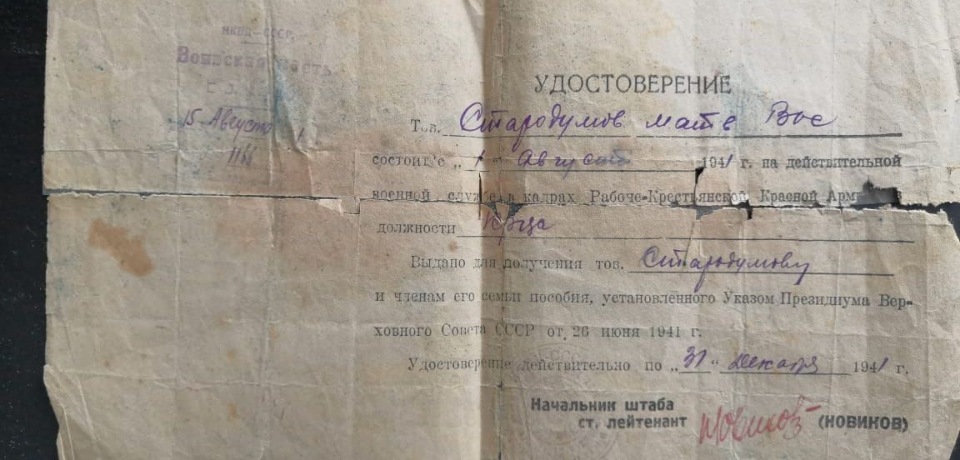 НКВД-СССР.
Воинская часть
15 Августа 1
1166
УДОСТОВЕРЕНИЕ
Тов. Стародумов матв Вас
состоит с „1“ Августа 1941 г. на действительной
военной службе в кадрах Рабоче-Крестьянской Красной Арм
должности
Выдано для получения тов. Стародумову
и членам его семьи пособия, установленного Указом Президиума Вер-
ховного Совета СССР от 26 июня 1941 г.
Удостоверение действительно по „31“ декабря 1941 г.
Начальник штаба
ст. лейтенант Новиков (НОВИКОВ)